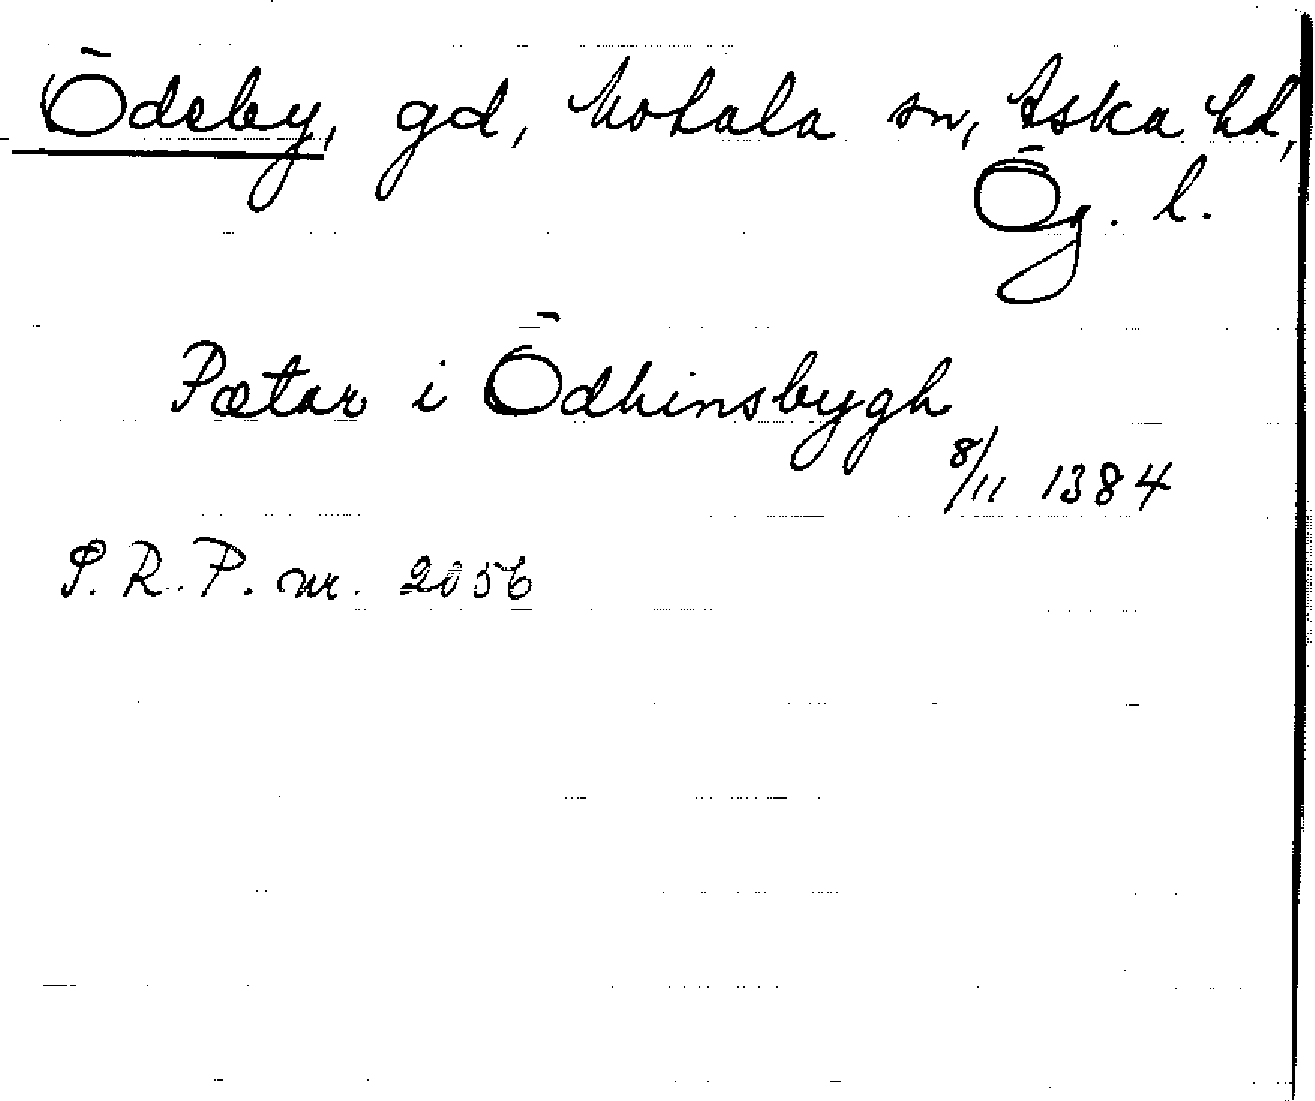 Ödeby, gd, Motala sn, Aska hd,
Ög. l.
Pætar i Ödhinsbygh
8/11 1384
S.R.P. nr. 2056